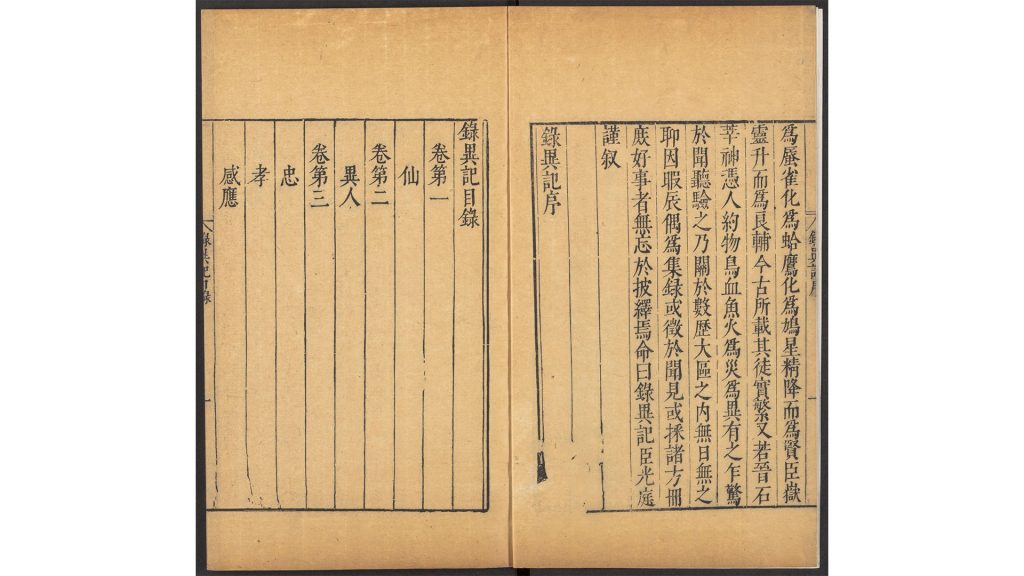 錄異記序
一
爲蜃雀化爲蛤鷹化爲鳩星精降而爲賢臣嶽
靈升而爲良輔今古所載其徒實繁又若晉石
莘神憑人約物鳥血魚火爲災爲異有之乍驚
於聞聽驗之乃關於數歷大區之内無日無之
聊因暇辰偶爲集錄或徵於聞見或採諸方冊
庻好事者無忘於披繹焉命曰錄異記臣光庭
謹叙
錄異記序
錄異記目錄
卷第一
仙
卷第二
異人
卷第三
忠
孝
感應
錄異記目錄
一